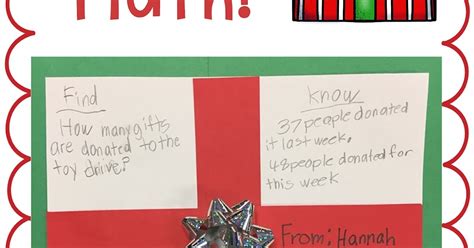 Math!
Find
How many gifts
are donated to the
toy driive?
Know
37 people donated
it last week.
48 people donated for
this week
From: Hannah